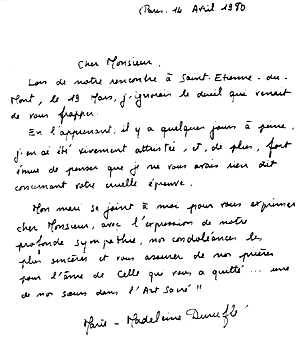 Paris. 14 Avril 1980
Cher Monsieur.
Lors de notre rencontre à Saint-Etienne-du-
Mont, le 19 Mars, j'ignorais le deuil qui venait
de vous frapper.
En l'apprenant, il y a quelques jours à peine,
j'en ai été vivement attristée, et, de plus, fort
émue de penser que je ne vous avais rien dit
concernant votre cruelle épreuve.
Mon mari se joint à moi pour vous exprimer
cher Monsieur, avec l'expression de notre
profonde sympathie, nos condoléances les
plus sincères et vous assurer de nos prières
pour l'âme de Celle qui vous a quitté... une
de nos sœurs dans l'Art Sacré !!
Marie-Madeleine Duruflé